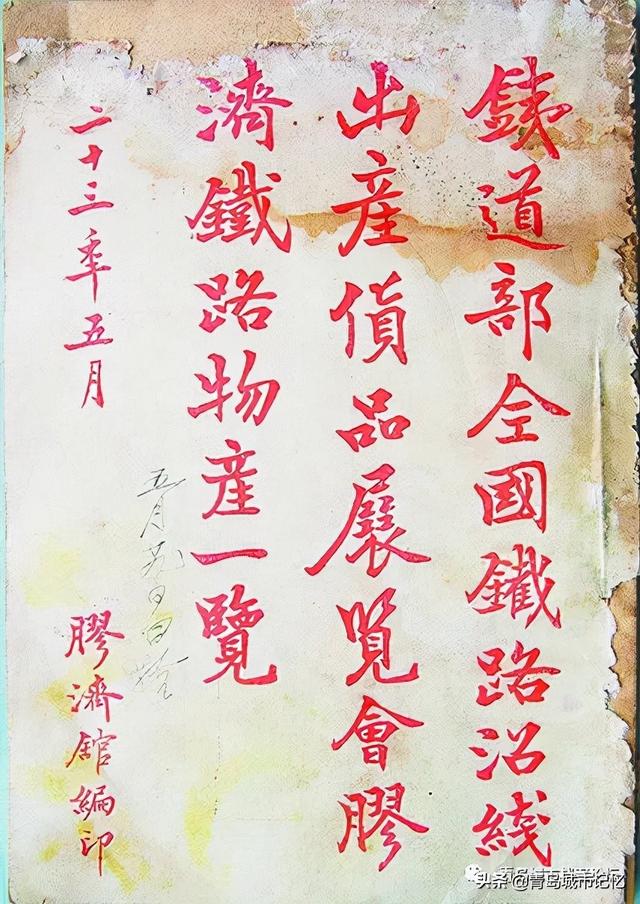 鐵道部全國鐵路沿綫
出產貨品展覽會膠
濟鐵路物産一覽
二十三年五月
膠濟館編印
五月
头条@青岛城市记忆